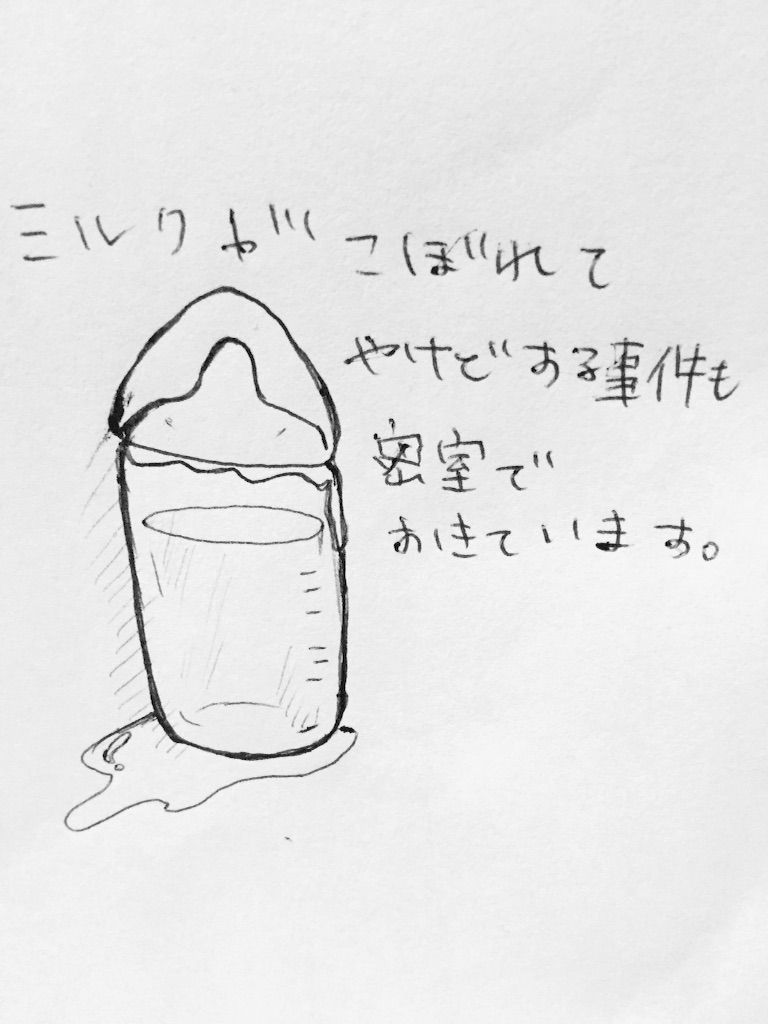 ミルクが こぼれて
やけどする事件も
密室で
おきています。